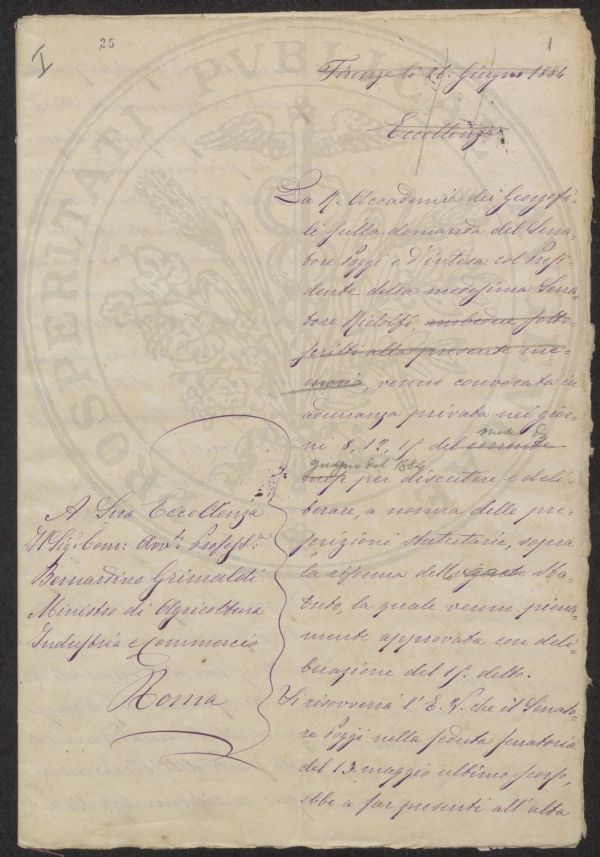 I
25
1
Firenze li 26. Giugno 1884
Eccellenza
La R. Accademia dei Georgofi=
li sulla domanda del Sena=
tore Poggi e d'intesa col Presi=
dente della medesima Sena=
tore Ridolfi, ambedue sotto=
scritti alla presente me=
moria, venne convocata in
adunanza privata nei gior=
ni 8, 12, 15 del corrente
mese di
giugno del 1884
mese per discutere e deli=
berare, a norma delle pre=
scrizioni Statutarie, sopra
la riforma dello Sta=
tuto, la quale venne piena=
mente approvata con deli=
berazione del 15. detto.
Si risovverrà l'E. V. che il Senato=
re Poggi nella seduta senatoria
del 13. maggio ultimo scorso,
ebbe a far presenti all'alta
A Sua Eccellenza
Il Sig. Com: Avv. Profess.
Bernardino Grimaldi
Ministro di Agricoltura
Industria e Commercio
Roma
PROSPERITATI PVBLICAE